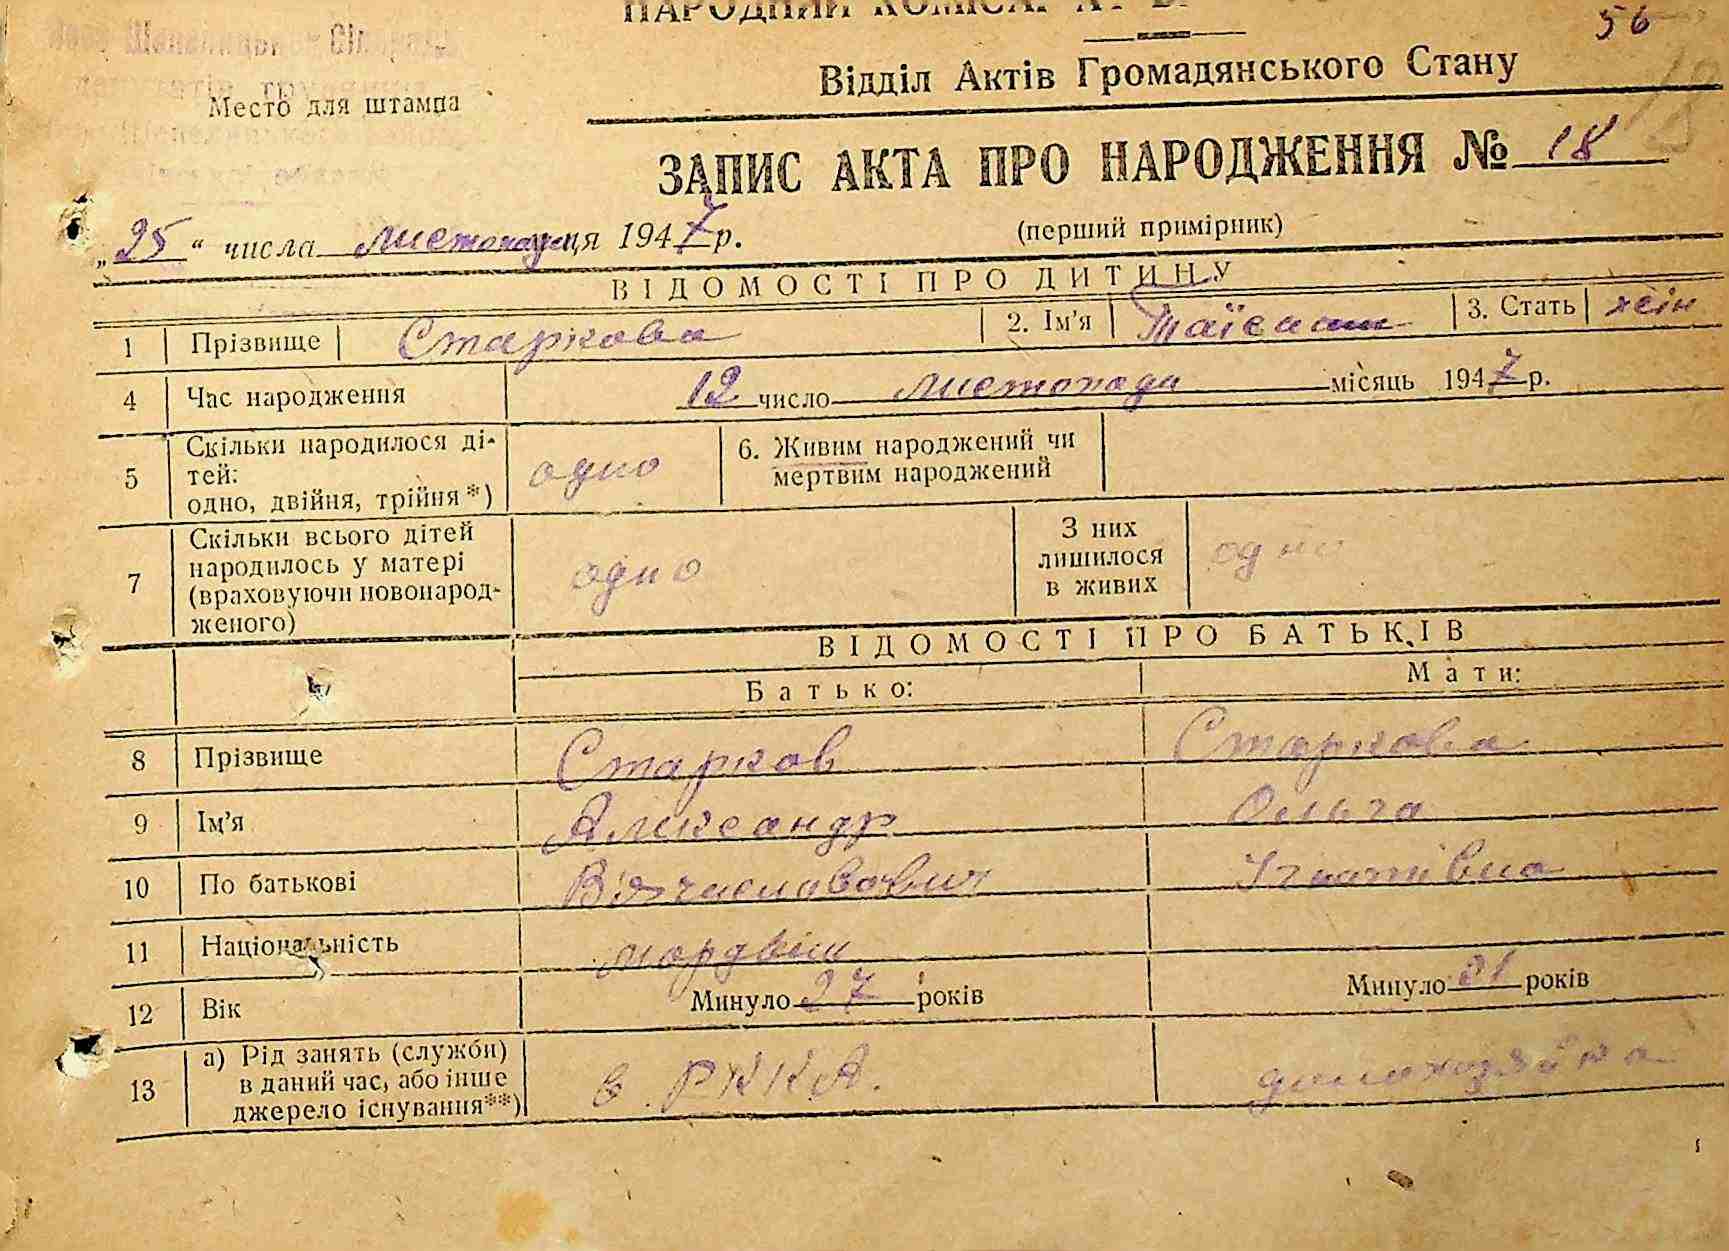 56
Відділ Актів Громадянського Стану
Место для штампа
ЗАПИС АКТА ПРО НАРОДЖЕННЯ № 18
„25“ числа листопад ця 1947 р. (перший примірник)
ВІДОМОСТІ ПРО ДИТИНУ
1 Прізвище Старкова 2. Ім'я 3. Стать жін
4 Час народження 12 число листопада місяць 1947 р.
5 Скільки народилося ді-
тей:
одно, двійня, трійня*) одно 6. Живим народжений чи
мертвим народжений
7 Скільки всього дітей
народилось у матері
(враховуючи новонарод-
женого) одно З них
лишилося
в живих одно
ВІДОМОСТІ ПРО БАТЬКІВ
Батько: Мати:
8 Прізвище Старков Старкова
9 Ім'я Александр Ольга
10 По батькові Вячеславович Ігнатівна
11 Національність мордвин
12 Вік Минуло 27 років Минуло 21 років
13 а) Рід занять (служби)
в даний час, або інше
джерело існування**) в РККА. домохозяйка